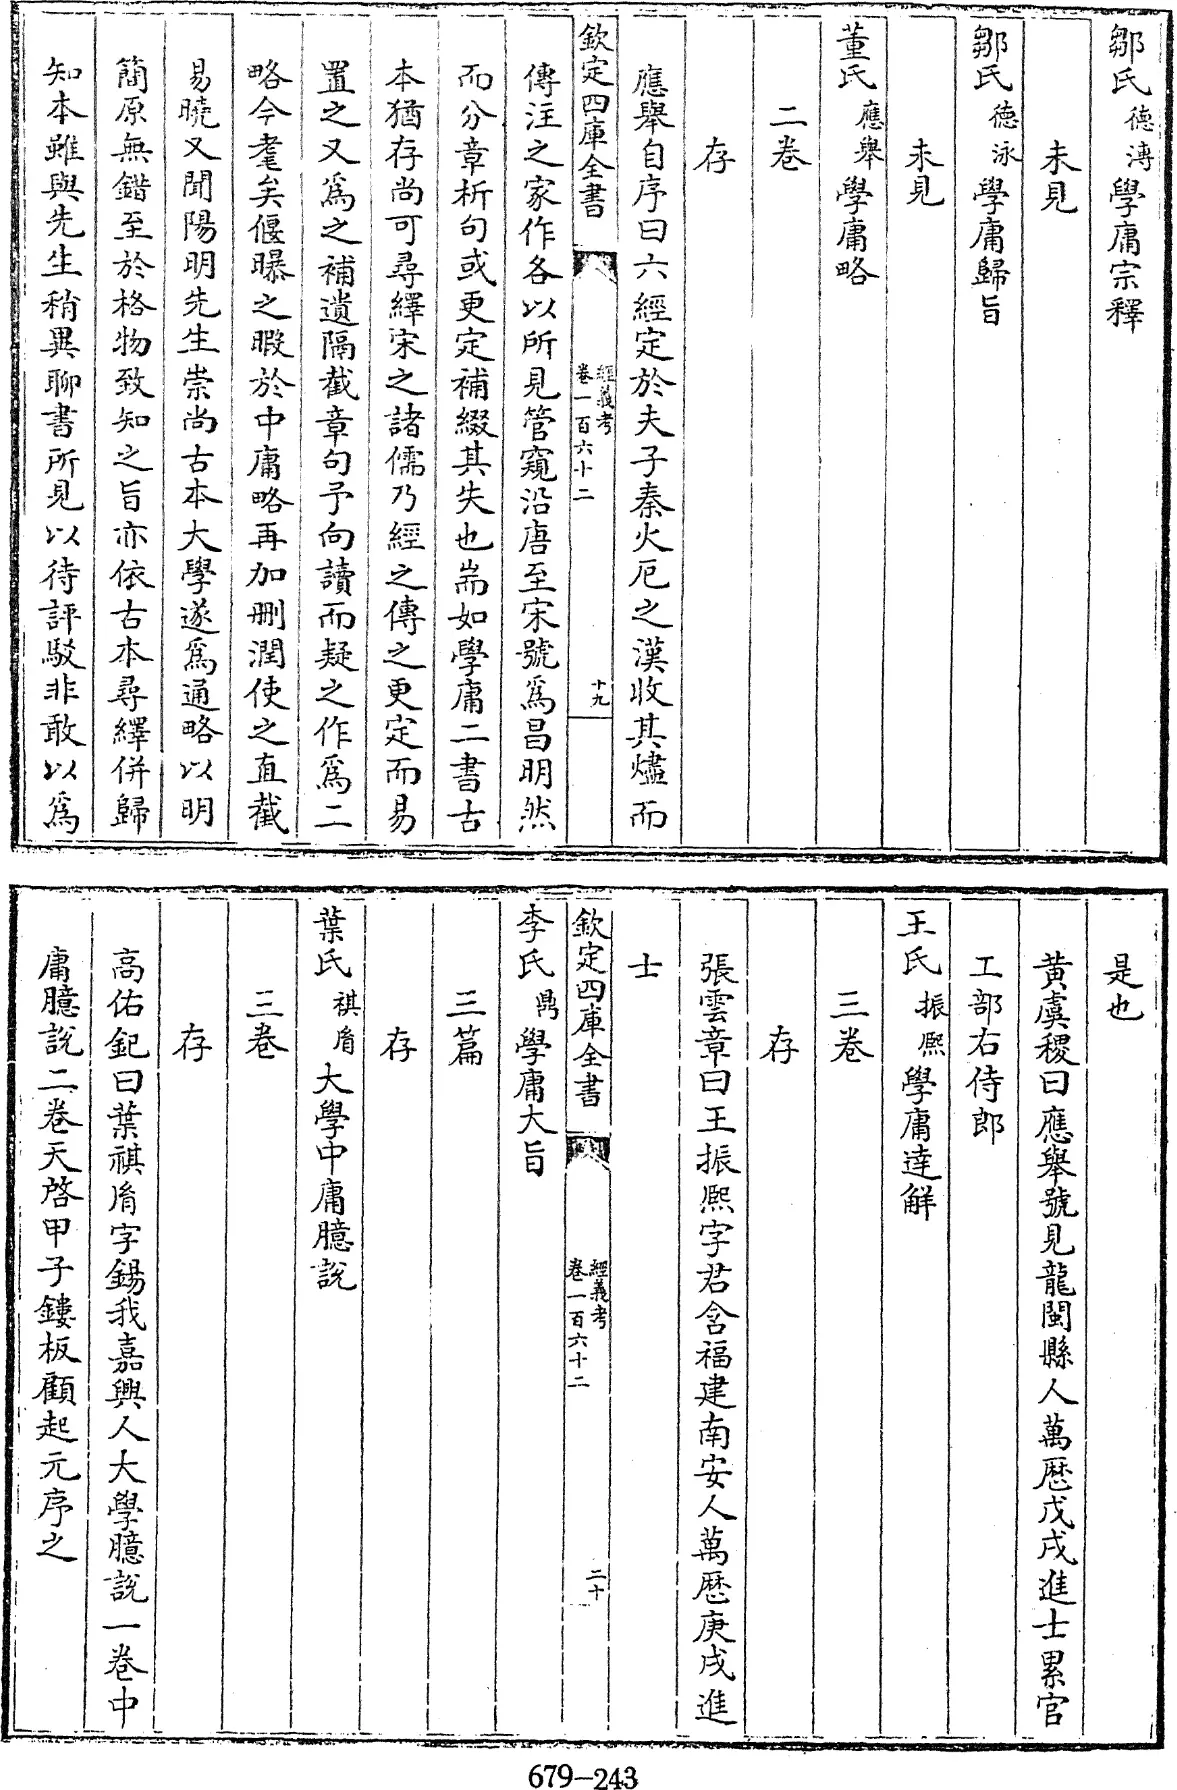 鄒氏德溥學庸宗釋
未見
鄒氏德泳學庸歸旨
未見
董氏應舉學庸略
二卷
存
應舉自序曰六經定於夫子秦火厄之漢收其燼而
欽定四庫全書
經義考
卷一百六十二
十九
傳注之家作各以所見管窺沿唐至宋號爲昌明然
而分章析句或更定補綴其失也耑如學庸二書古
本猶存尚可尋繹宋之諸儒乃經之傳之更定而易
置之又爲之補遺隔截章句予向讀而疑之作爲二
略今耄矣偃曝之暇於中庸略再加刪潤使之直截
易曉又聞陽明先生崇尚古本大學遂爲通略以明
簡原無錯至於格物致知之旨亦依古本尋繹併歸
知本雖與先生稍異聊書所見以待評駁非敢以爲
是也
黃虞稷曰應舉號見龍閩縣人萬厯戊戌進士累官
工部右侍郎
王氏振熙學庸達解
三卷
存
張雲章曰王振熙字君含福建南安人萬厯庚戌進
士
欽定四庫全書
經義考
卷一百六十二
二十
李氏鼎學庸大旨
三篇
存
葉氏祺胤大學中庸臆說
三卷
存
高佑釲曰葉祺胤字錫我嘉興人大學臆說一卷中
庸臆說二卷天啓甲子鏤板顧起元序之
679-243